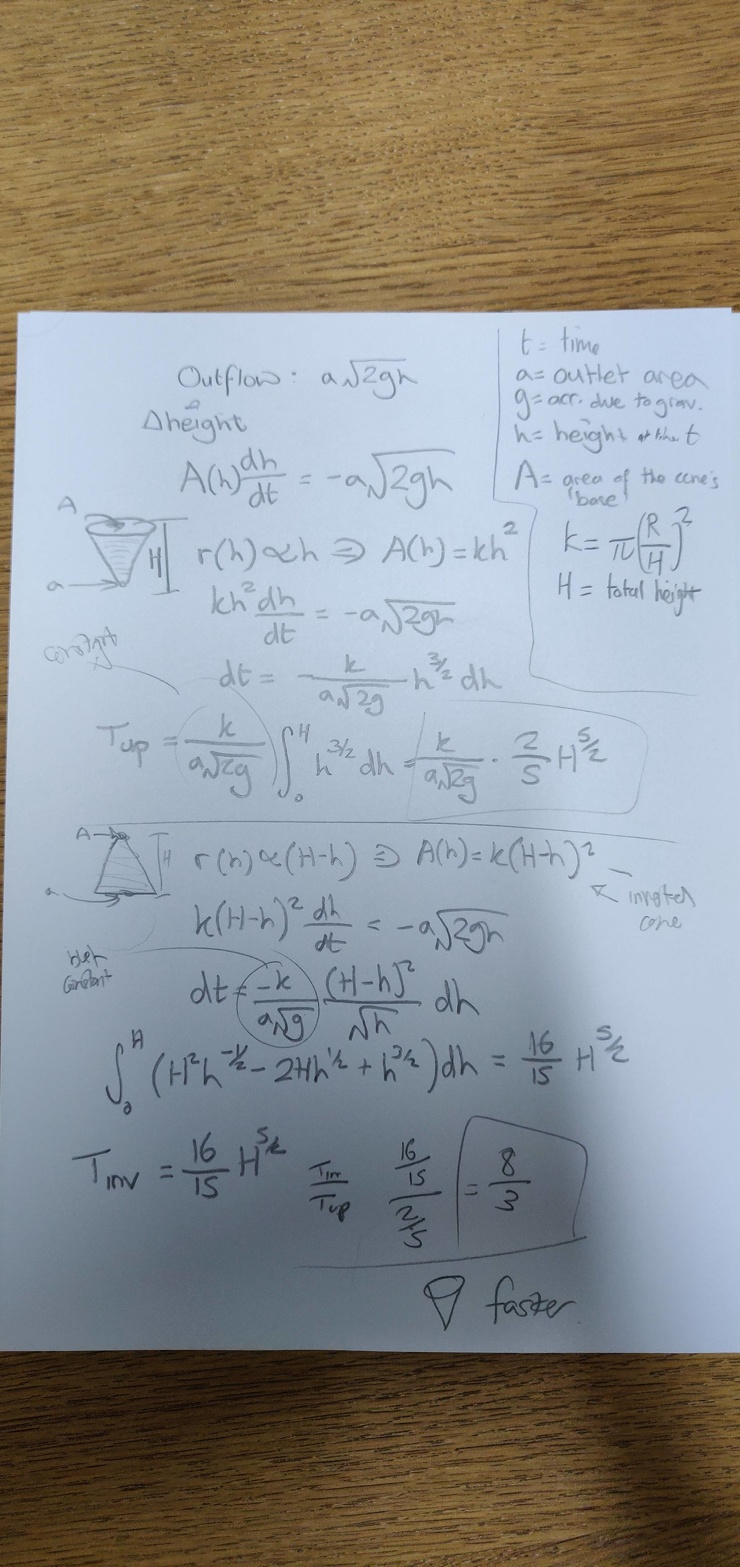 Outflow: a√2gh
Δheight
A(h) dh/dt = -a√2gh
t = time
a = outlet area
g = acc. due to grav.
h = height at time t
A = area of the cone's 'base'
k = π(R/H)²
H = total height
A
a
H
r(h) ∝ h ⇒ A(h) = kh²
kh² dh/dt = -a√2gh
constant
dt = - k/(a√2g) h^(3/2) dh
Tup = k/(a√2g) ∫₀ᴴ h^(3/2) dh = k/(a√2g) · 2/5 H^(5/2)
A
a
H
r(h) ∝ (H-h) ⇒ A(h) = k(H-h)²
inverted cone
k(H-h)² dh/dt = -a√2gh
constant
dt = -k/(a√g) (H-h)²/√h dh
∫₀ᴴ (H²h^(-1/2) - 2Hh^(1/2) + h^(3/2)) dh = 16/15 H^(5/2)
Tinv = 16/15 H^(5/2)
Tinv/Tup
(16/15)/(2/5) = 8/3
faster